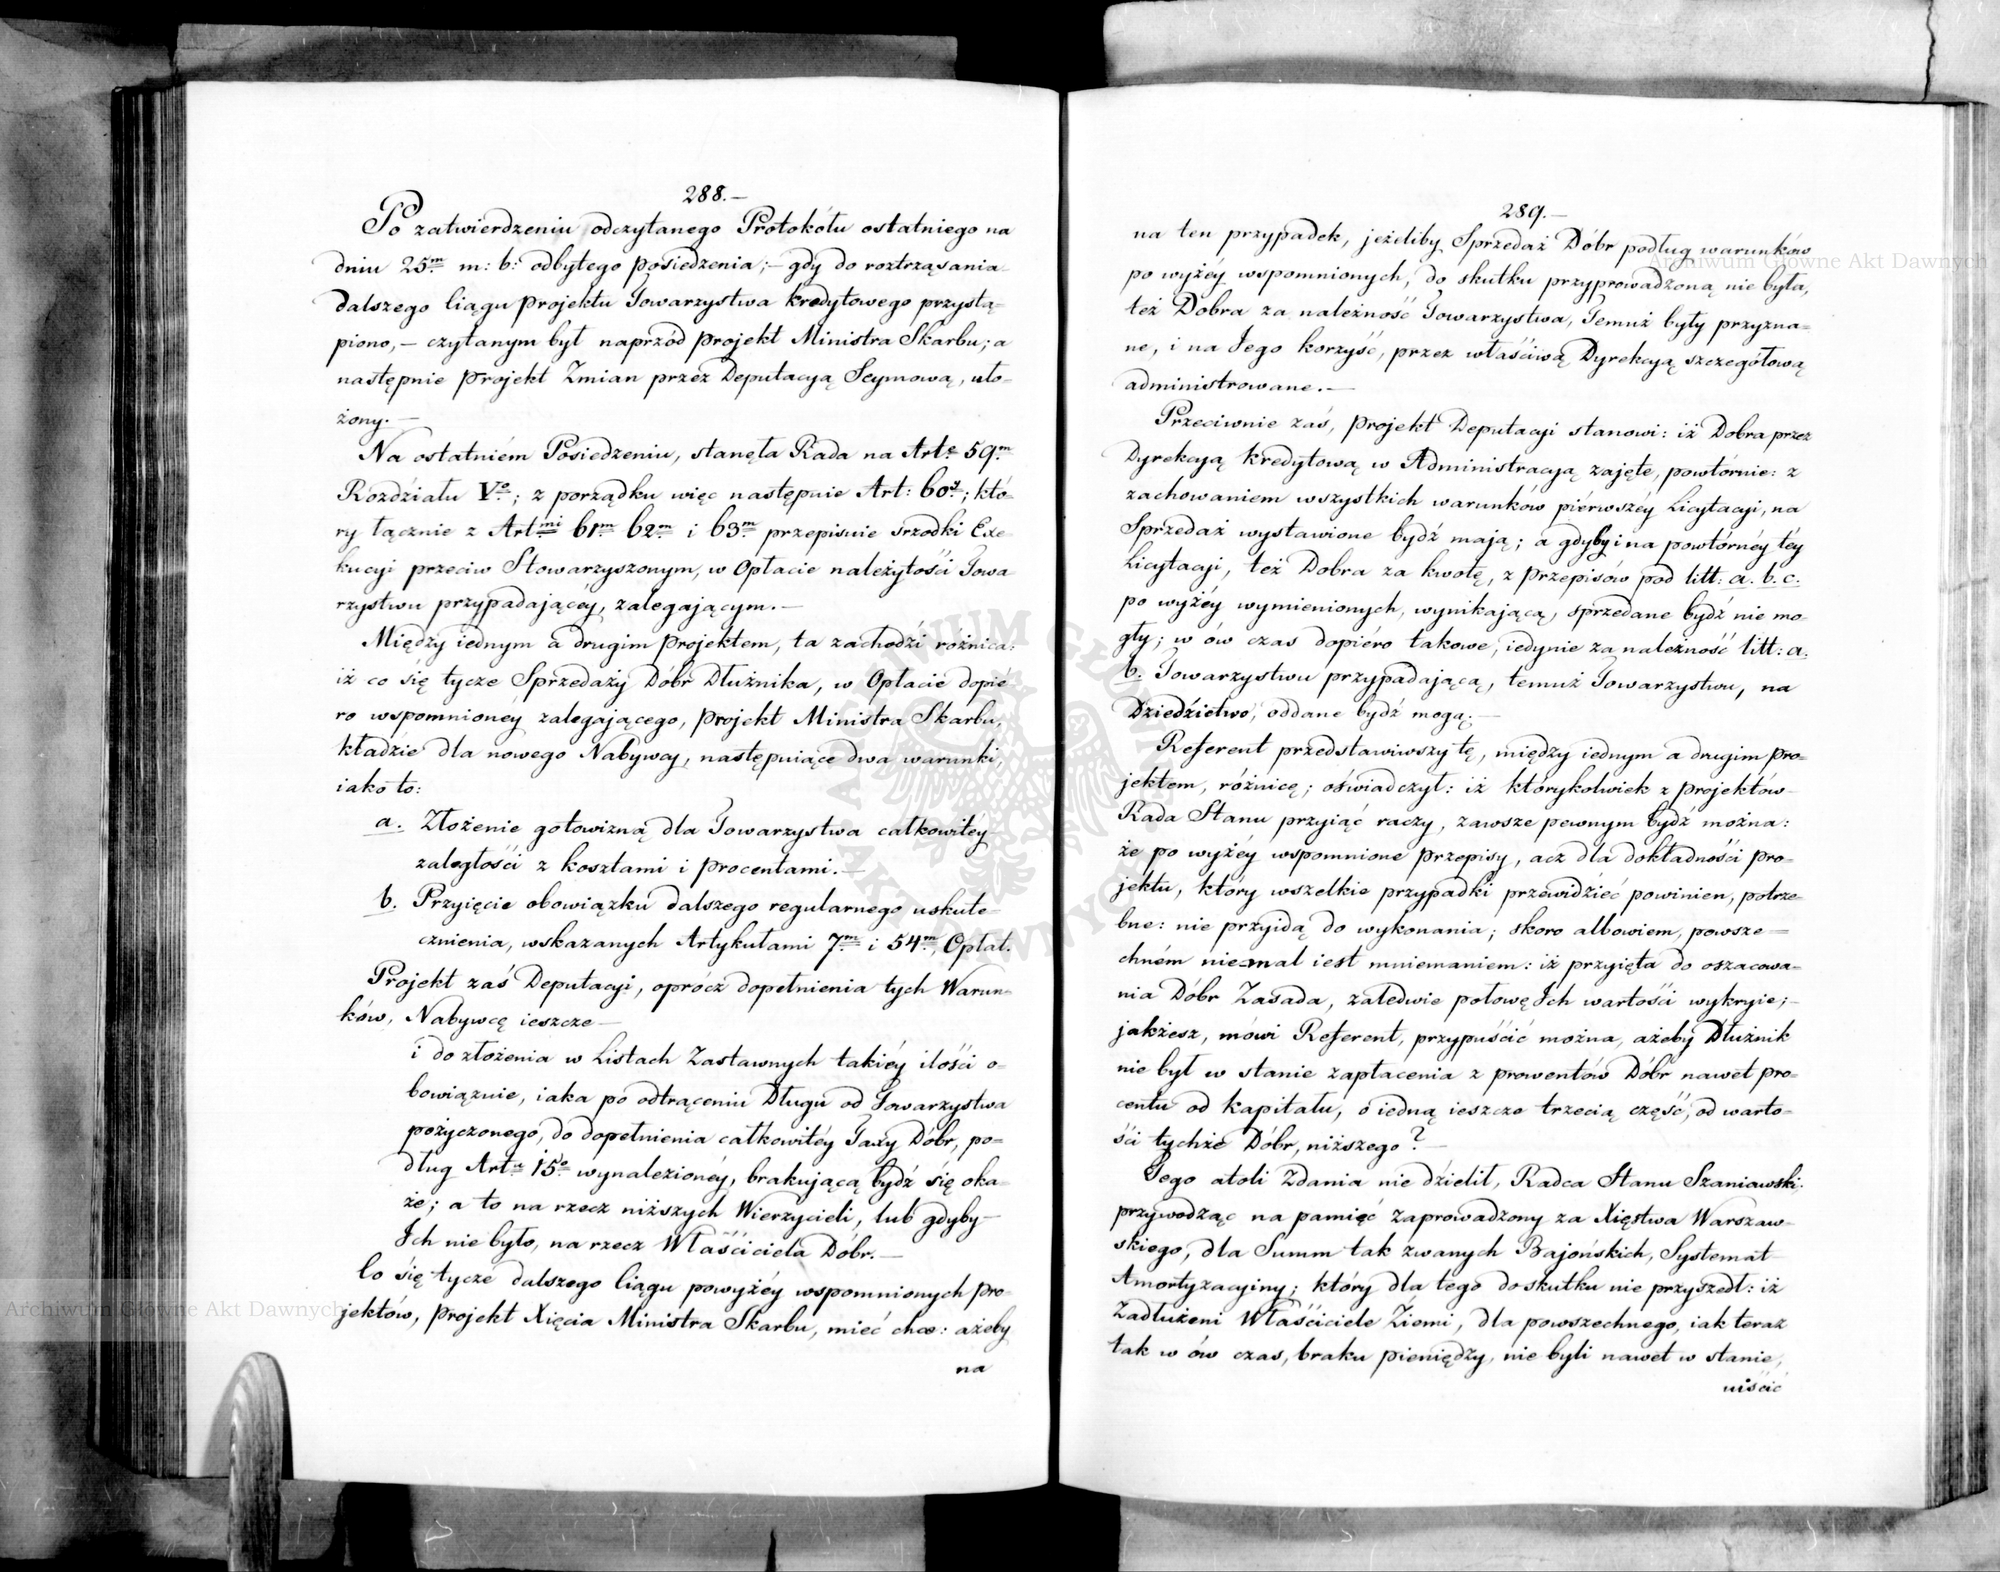 288.—
Po zatwierdzeniu odczytanego Protokółu ostatniego na
dniu 25m m: b: odbytego posiedzenia;— gdy do roztrząsania
dalszego Ciągu projektu Towarzystwa kredytowego przystą-
piono,— czytanym był naprzód projekt Ministra Skarbu; a
następnie projekt Zmian przez Deputacyą Seymową, uło-
żony.—
Na ostatniém Posiedzeniu, stanęła Rada na Arte 59m
Rozdziału Vo; z porządku więc następnie Art: 60y; któ-
ry łącznie z Artmi 61m 62m i 63m przepisuie śrzodki Exe-
kucyi przeciw Stowarzyszonym, w Opłacie należytości Towa
rzystwu przypadającéy, zalegającym.—
Między iednym a drugim projektem, ta zachodzi różnica:
iż co się tycze Sprzedaży Dóbr Dłużnika, w Opłacie dopié
ro wspomnionéy zalegającego, projekt Ministra Skarbu,
kładzie dla nowego Nabywcy, następuiące dwa warunki,
iako to:
a. Złożenie gotowizną dla Towarzystwa całkowitéy
zaległości z kosztami i procentami.—
b. Przyięcie obowiązku dalszego regularnego uskute-
cznienia, wskazanych Artykułami 7m i 54m, Opłat.
Projekt zaś Deputacyi, oprócz dopełnienia tych Warun-
ków, Nabywcę ieszcze—
i do złożenia w Listach Zastawnych takiéy ilości o-
bowiązuie, iaka po odtrąceniu Długu od Towarzystwa
pożyczonego, do dopełnienia całkowitéy Taxy Dóbr, po-
dług Artu 15o wynalezionéy, brakującą bydź się oka-
że; a to na rzecz niższych Wierzycieli, lub gdyby—
Ich nie było, na rzecz Właściciela Dóbr.—
Co się tycze dalszego Ciągu powyżéy wspomnionych pro-
jektów, projekt Xięcia Ministra Skarbu, mieć chce: ażeby
na
289.—
na ten przypadek, jeżeliby Sprzedaż Dóbr podług warunków
po wyżéy wspomnionych, do skutku przyprowadzoną nie była,
też Dobra za należność Towarzystwa, Temuż były przyzna-
ne, i na Jego korzyść, przez właściwą Dyrekcyą szczegółową
administrowane.—
Przeciwnie zaś, projekt Deputacyi stanowi: iż Dobra przez
Dyrekcyą kredytową w Administracyą zajęte, powtórnie: z
zachowaniem wszystkich warunków piérwszéy Licytacyi, na
Sprzedaż wystawione bydź mają; a gdyby i na powtórnéy téy
Licytacyi, też Dobra za kwotę, z przepisów pod litt: a. b. c.
po wyżéy wymienionych, wynikającą, sprzedane bydź nie mo-
gły; w ów czas dopiéro takowe, iedynie za należność litt: a.
b. Towarzystwu przypadającą, temuż Towarzystwu, na
Dziedzictwo, oddane bydź mogą.—
Referent przedstawiwszy tę, między iednym a drugim pro-
jektem, różnicę; oświadczył: iż którykolwiek z projektów
Rada Stanu przyiąć raczy, zawsze pewnym bydź można:
że po wyżéy wspomnione przepisy, acz dla dokładności pro-
jektu, który wszelkie przypadki przewidzieć powinien, potrze-
bne: nie przyidą do wykonania; skoro albowiem, powsze-
chném niemal iest mniemaniem: iż przyięta do oszacowa-
nia Dóbr Zasada, zaledwie połowę Ich wartości wykryie;—
jakżesz, mówi Referent, przypuścić można, ażeby Dłużnik
nie był w stanie zapłacenia z prowentów Dóbr nawet pro-
centu od kapitału, o iedną ieszcze trzecią część, od warto-
ści tychże Dóbr, niższego?—
Tego atoli Zdania nie dzielił, Radca Stanu Szaniawski:
przywodząc na pamięć zaprowadzony za Xięstwa Warszaw-
skiego, dla Summ tak zwanych Bajońskich, Systemat
Amortyzacyiny; który dla tego do skutku nie przyszedł: iż
Zadłużeni Właściciele Ziemi, dla powszechnego, iak teraz
tak w ów czas, braku pieniędzy, nie byli nawet w stanie,
uiścić
Archiwum Główne Akt Dawnych
Archiwum Główne Akt Dawnych
ARCHIWUM GŁÓWNE AKT DAWNYCH